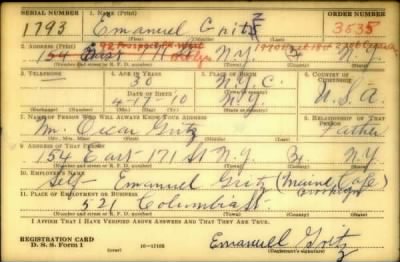 SERIAL NUMBER 1. NAME (Print) ORDER NUMBER
1793 Emanuel Gritz 3535
(First) (Middle) (Last)
2. ADDRESS (Print)
154 East N.Y. Bx N.Y.
(Number and street or R. F. D. number) (Town) (County) (State)
3. TELEPHONE 4. AGE IN YEARS 5. PLACE OF BIRTH 6. COUNTRY OF CITIZENSHIP
30 N.Y.C.
DATE OF BIRTH
4-15-10 N.Y. U.S.A.
(Exchange) (Number) (Mo.) (Day) (Yr.) (State or country)
7. NAME OF PERSON WHO WILL ALWAYS KNOW YOUR ADDRESS 8. RELATIONSHIP OF THAT PERSON
Mr. Oscar Gritz Father
(Mr., Mrs., Miss) (First) (Middle) (Last)
9. ADDRESS OF THAT PERSON
154 East 171 St N.Y. Bx. N.Y.
(Number and street or R. F. D. number) (Town) (County) (State)
10. EMPLOYER'S NAME
Self - Emanuel Gritz (Maine Cafe)
11. PLACE OF EMPLOYMENT OR BUSINESS Brooklyn
521 Columbia St.
(Number and street or R. F. D. number) (Town) (County) (State)
I AFFIRM THAT I HAVE VERIFIED ABOVE ANSWERS AND THAT THEY ARE TRUE.
REGISTRATION CARD
D. S. S. Form 1 16-17105 Emanuel Gritz
(Registrant's signature)